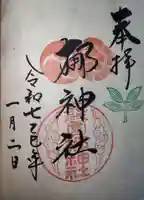 奉拝
梛神社
令和七乙巳年
一月二日